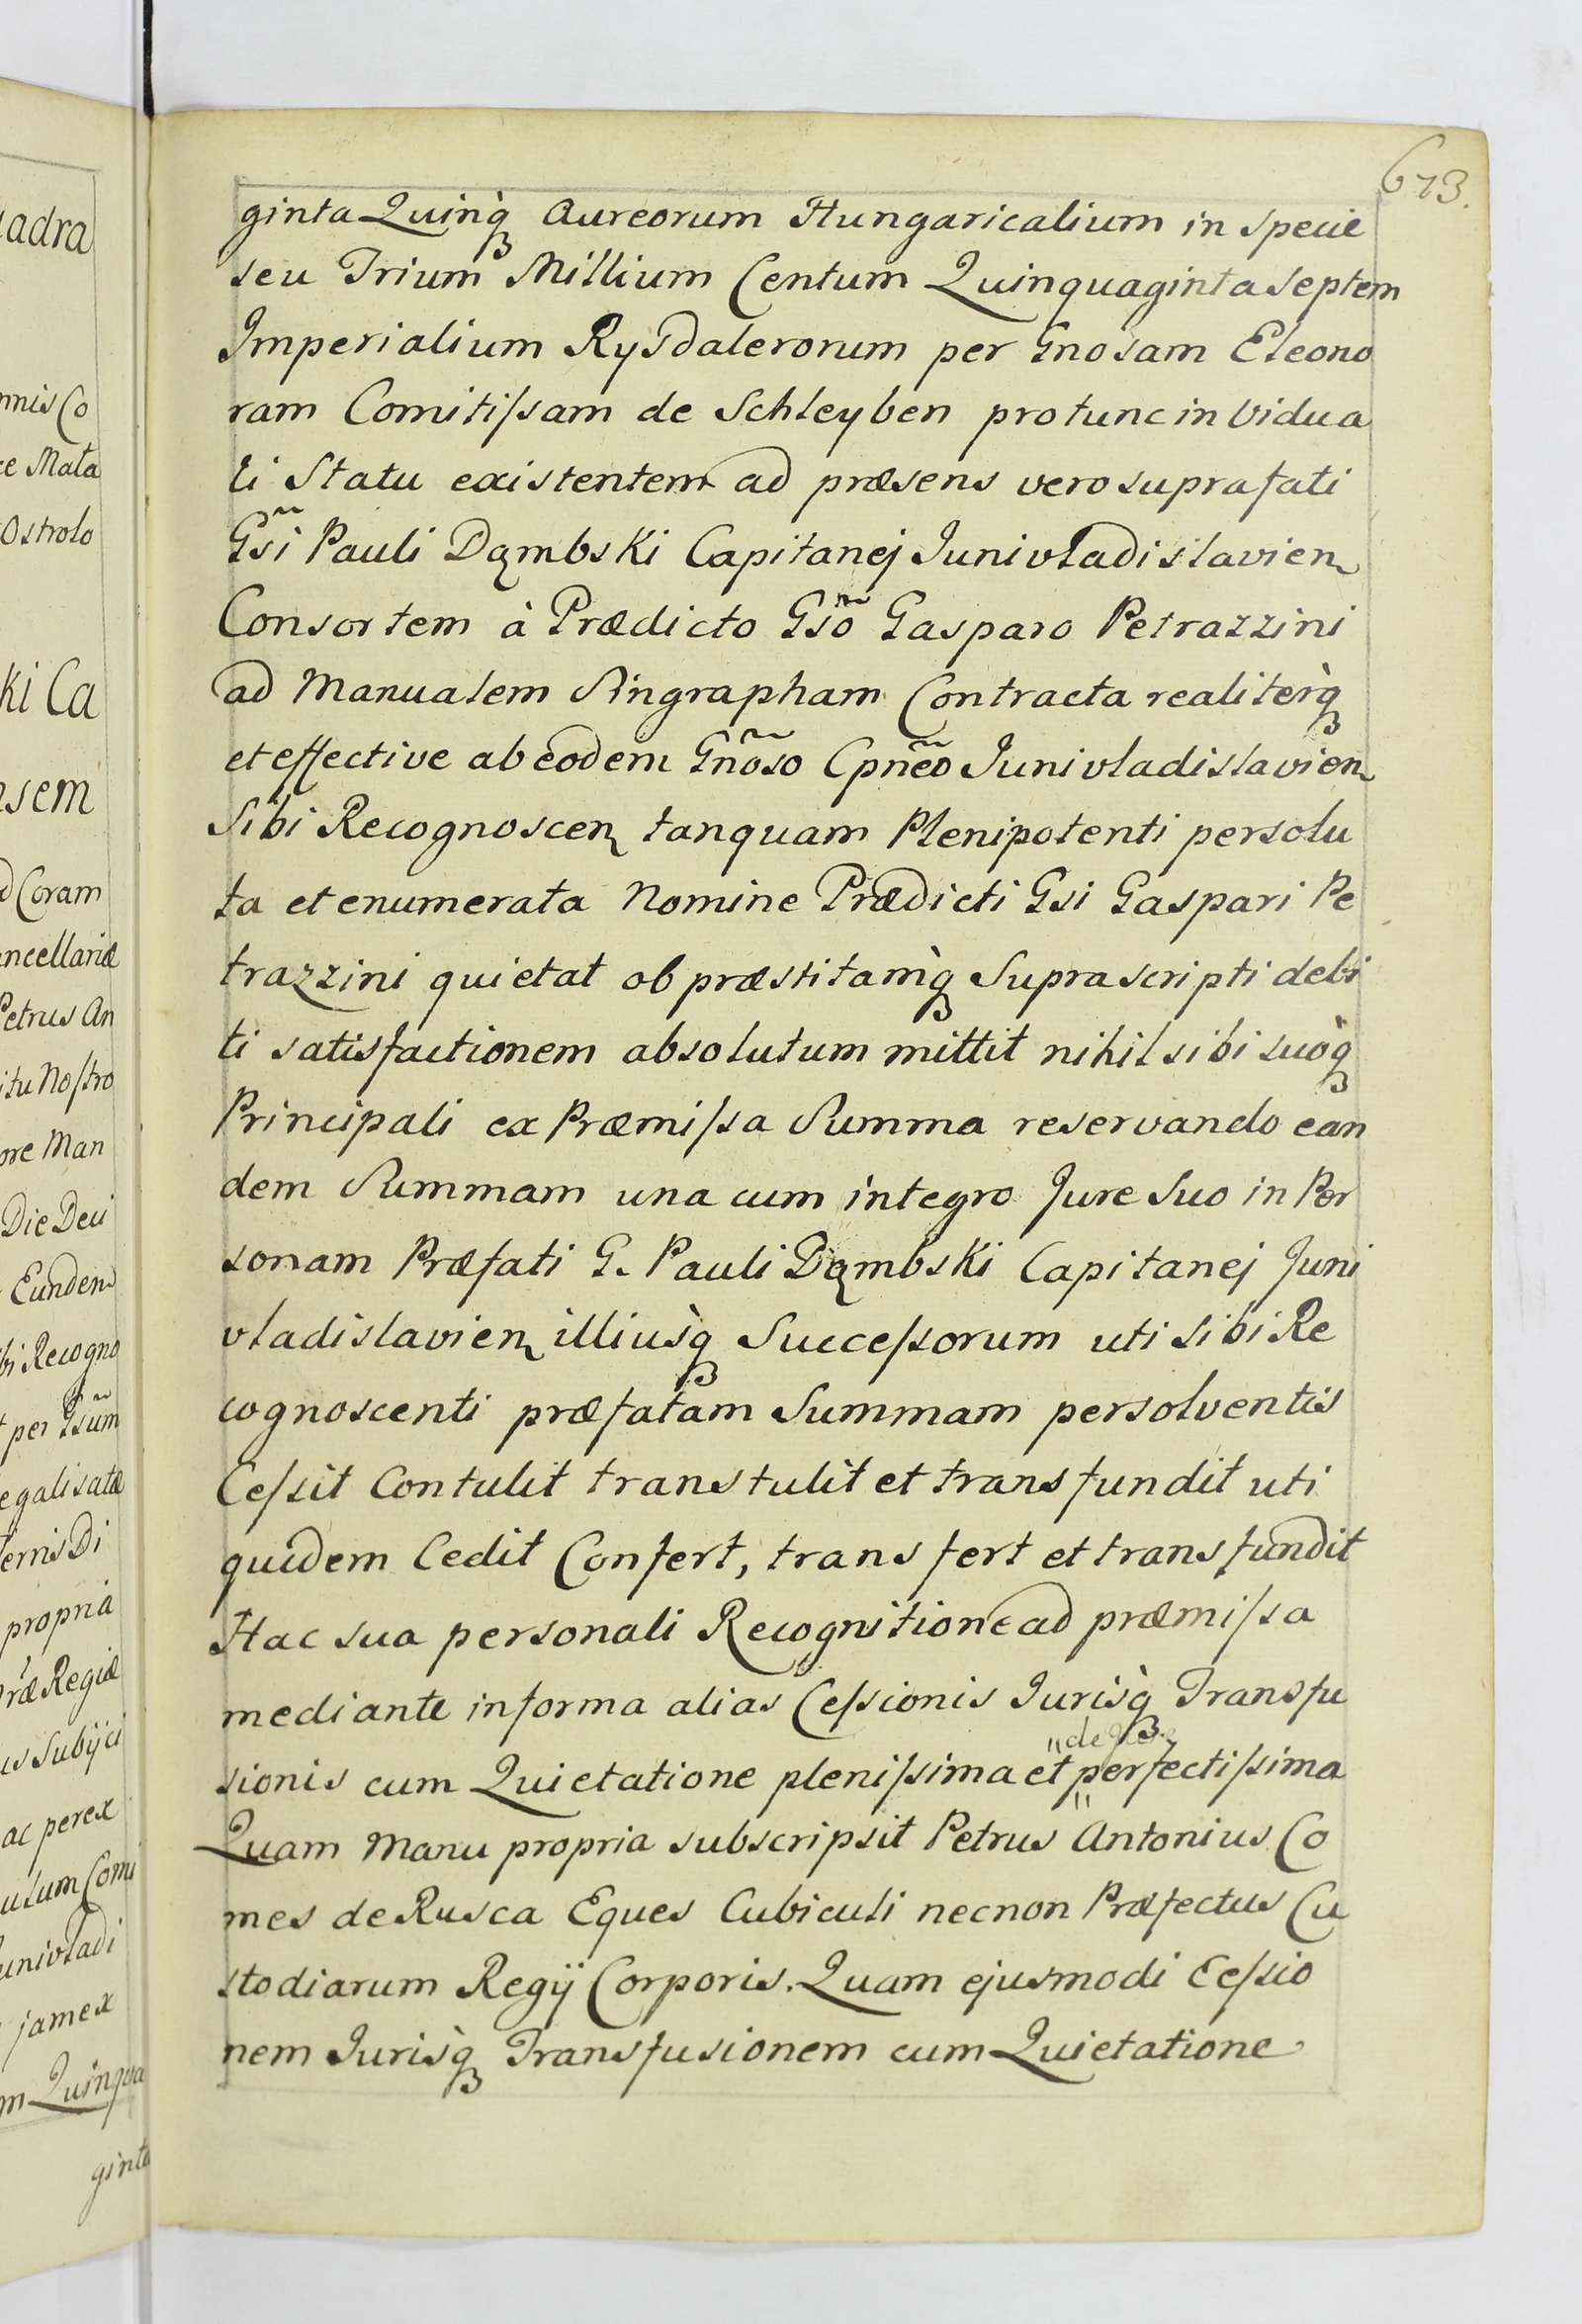 673.
ginta Quinq̀ꝫ Aureorum Hungaricalium in Specie
seu Trium Millium Centum Quinquaginta septem
Imperialium Rysdalerorum per Gnosam Eleono
ram Comitiſsam de Schleyben protunc in Vidua
li Statu existentem ad præsens vero suprafati
Gsi Pauli Dąmbski Capitanej Junivladislavien
Consortem à Prædicto Gso Gasparo Petrazzini
ad Manualem Singrapham Contracta realiterq̀ꝫ
et effective ab eodem Gnoso Cpneo Junivladislavien
Sibi Recognoscen tanquam Plenipotenti persolu
ta et enumerata Nomine Prædicti Gsi Gaspari Pe
trazzini quietat ob præstitamq̀ꝫ Suprascripti debi
ti satisfactionem absolutum mittit nihil sibi suoq̀ꝫ
Principali ex Præmiſsa Summa reservando ean
dem Summam una cum integro Jure Suo in Per
sonam Præfati G. Pauli Dąmbski Capitanej Juni
vladislavien illiusq̀ꝫ Succeſsorum uti sibi Re
cognoscenti præfatam Summam persolventis
Ceſsit Contulit transtulit et transfundit uti
quidem Cedit Confert, transfert et transfundit
Hac sua personali Recognitione ad præmiſsa
mediante in forma alias Ceſsionis Jurisq̀ꝫ Transfu
sionis cum Quietatione pleniſsima et perfectiſsima
Quam Manu propria subscripsit Petrus Antonius Co
mes de Rusca Eques Cubiculi necnon Præfectus Cu
stodiarum Regij Corporis. Quam ejusmodi Ceſsio
nem Jurisq̀ꝫ Transfusionem cum Quietatione